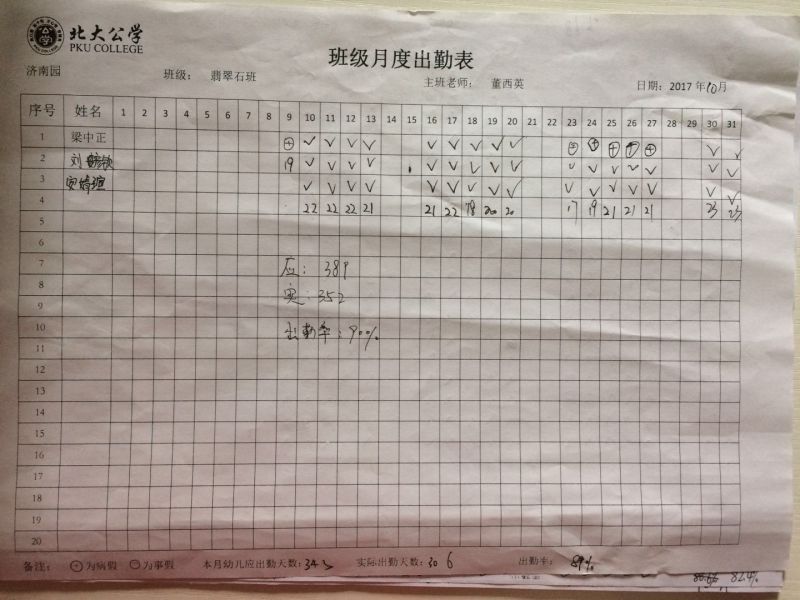 北大公学
PKU COLLEGE
班级月度出勤表
济南园 班级： 翡翠石班 主班老师： 董西英 日期：2017年10月
序号 姓名 1 2 3 4 5 6 7 8 9 10 11 12 13 14 15 16 17 18 19 20 21 22 23 24 25 26 27 28 29 30 31
1 梁中正 ⊕ ✓ ✓ ✓ ✓ ✓ ✓ ✓ ✓ ✓ ⊕ ⊕ ✓ ✓
2 刘 19 ✓ ✓ ✓ ✓ ✓ ✓ ✓ ✓ ✓ ✓ ✓ ✓ ✓ ✓ ✓ ✓
3 ✓ ✓ ✓ ✓ ✓ ✓ ✓ ✓ ✓ ✓ ✓ ✓ ✓ ✓ ✓ ✓
4 22 22 22 21 21 22 18 20 20 17 19 21 21 21 23 23
5
6
7 应：389
8 实：352
9
10 出勤率：90%
11
12
13
14
15
16
17
18
19
20
备注： ⊕为病假 ⊖为事假 本月幼儿应出勤天数：343 实际出勤天数：306 出勤率： 89%
82.4%